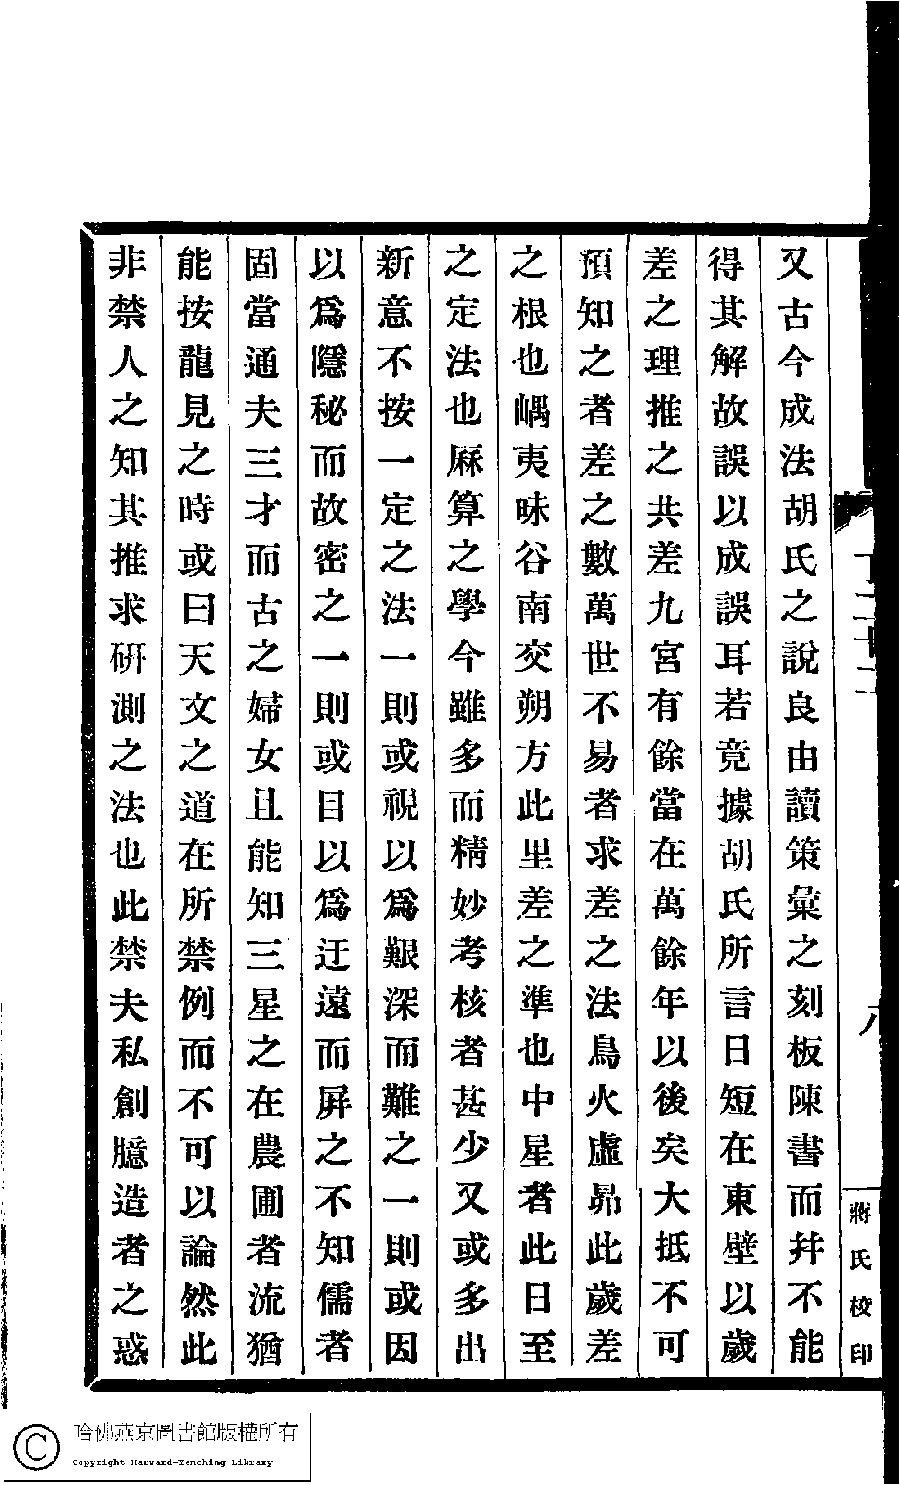 又古今成法胡氏之說良由讀策彙之刻板陳書而幷不能
得其解故誤以成誤耳若竞據胡氏所言日短在東壁以歲
差之理推之共差九宮有餘當在萬餘年以後矣大抵不可
預知之者差之數萬世不易者求差之法鳥火虛昴此歲差
之根也嵎夷昧谷南交朔方此里差之準也中星者此日至
之定法也厤算之學今雖多而精妙考核者甚少又或多出
新意不按一定之法一則或視以爲艱深而難之一則或因
以爲隱秘而故密之一則或目以爲迂遠而屏之不知儒者
固當通夫三才而古之婦女且能知三星之在農圃者流猶
能按龍見之時或曰天文之道在所禁例而不可以論然此
非禁人之知其推求硏測之法也此禁夫私創臆造者之惑
蔣氏校印
哈佛燕京圖書館版權所有
Copyright Harvard-Yenching Library